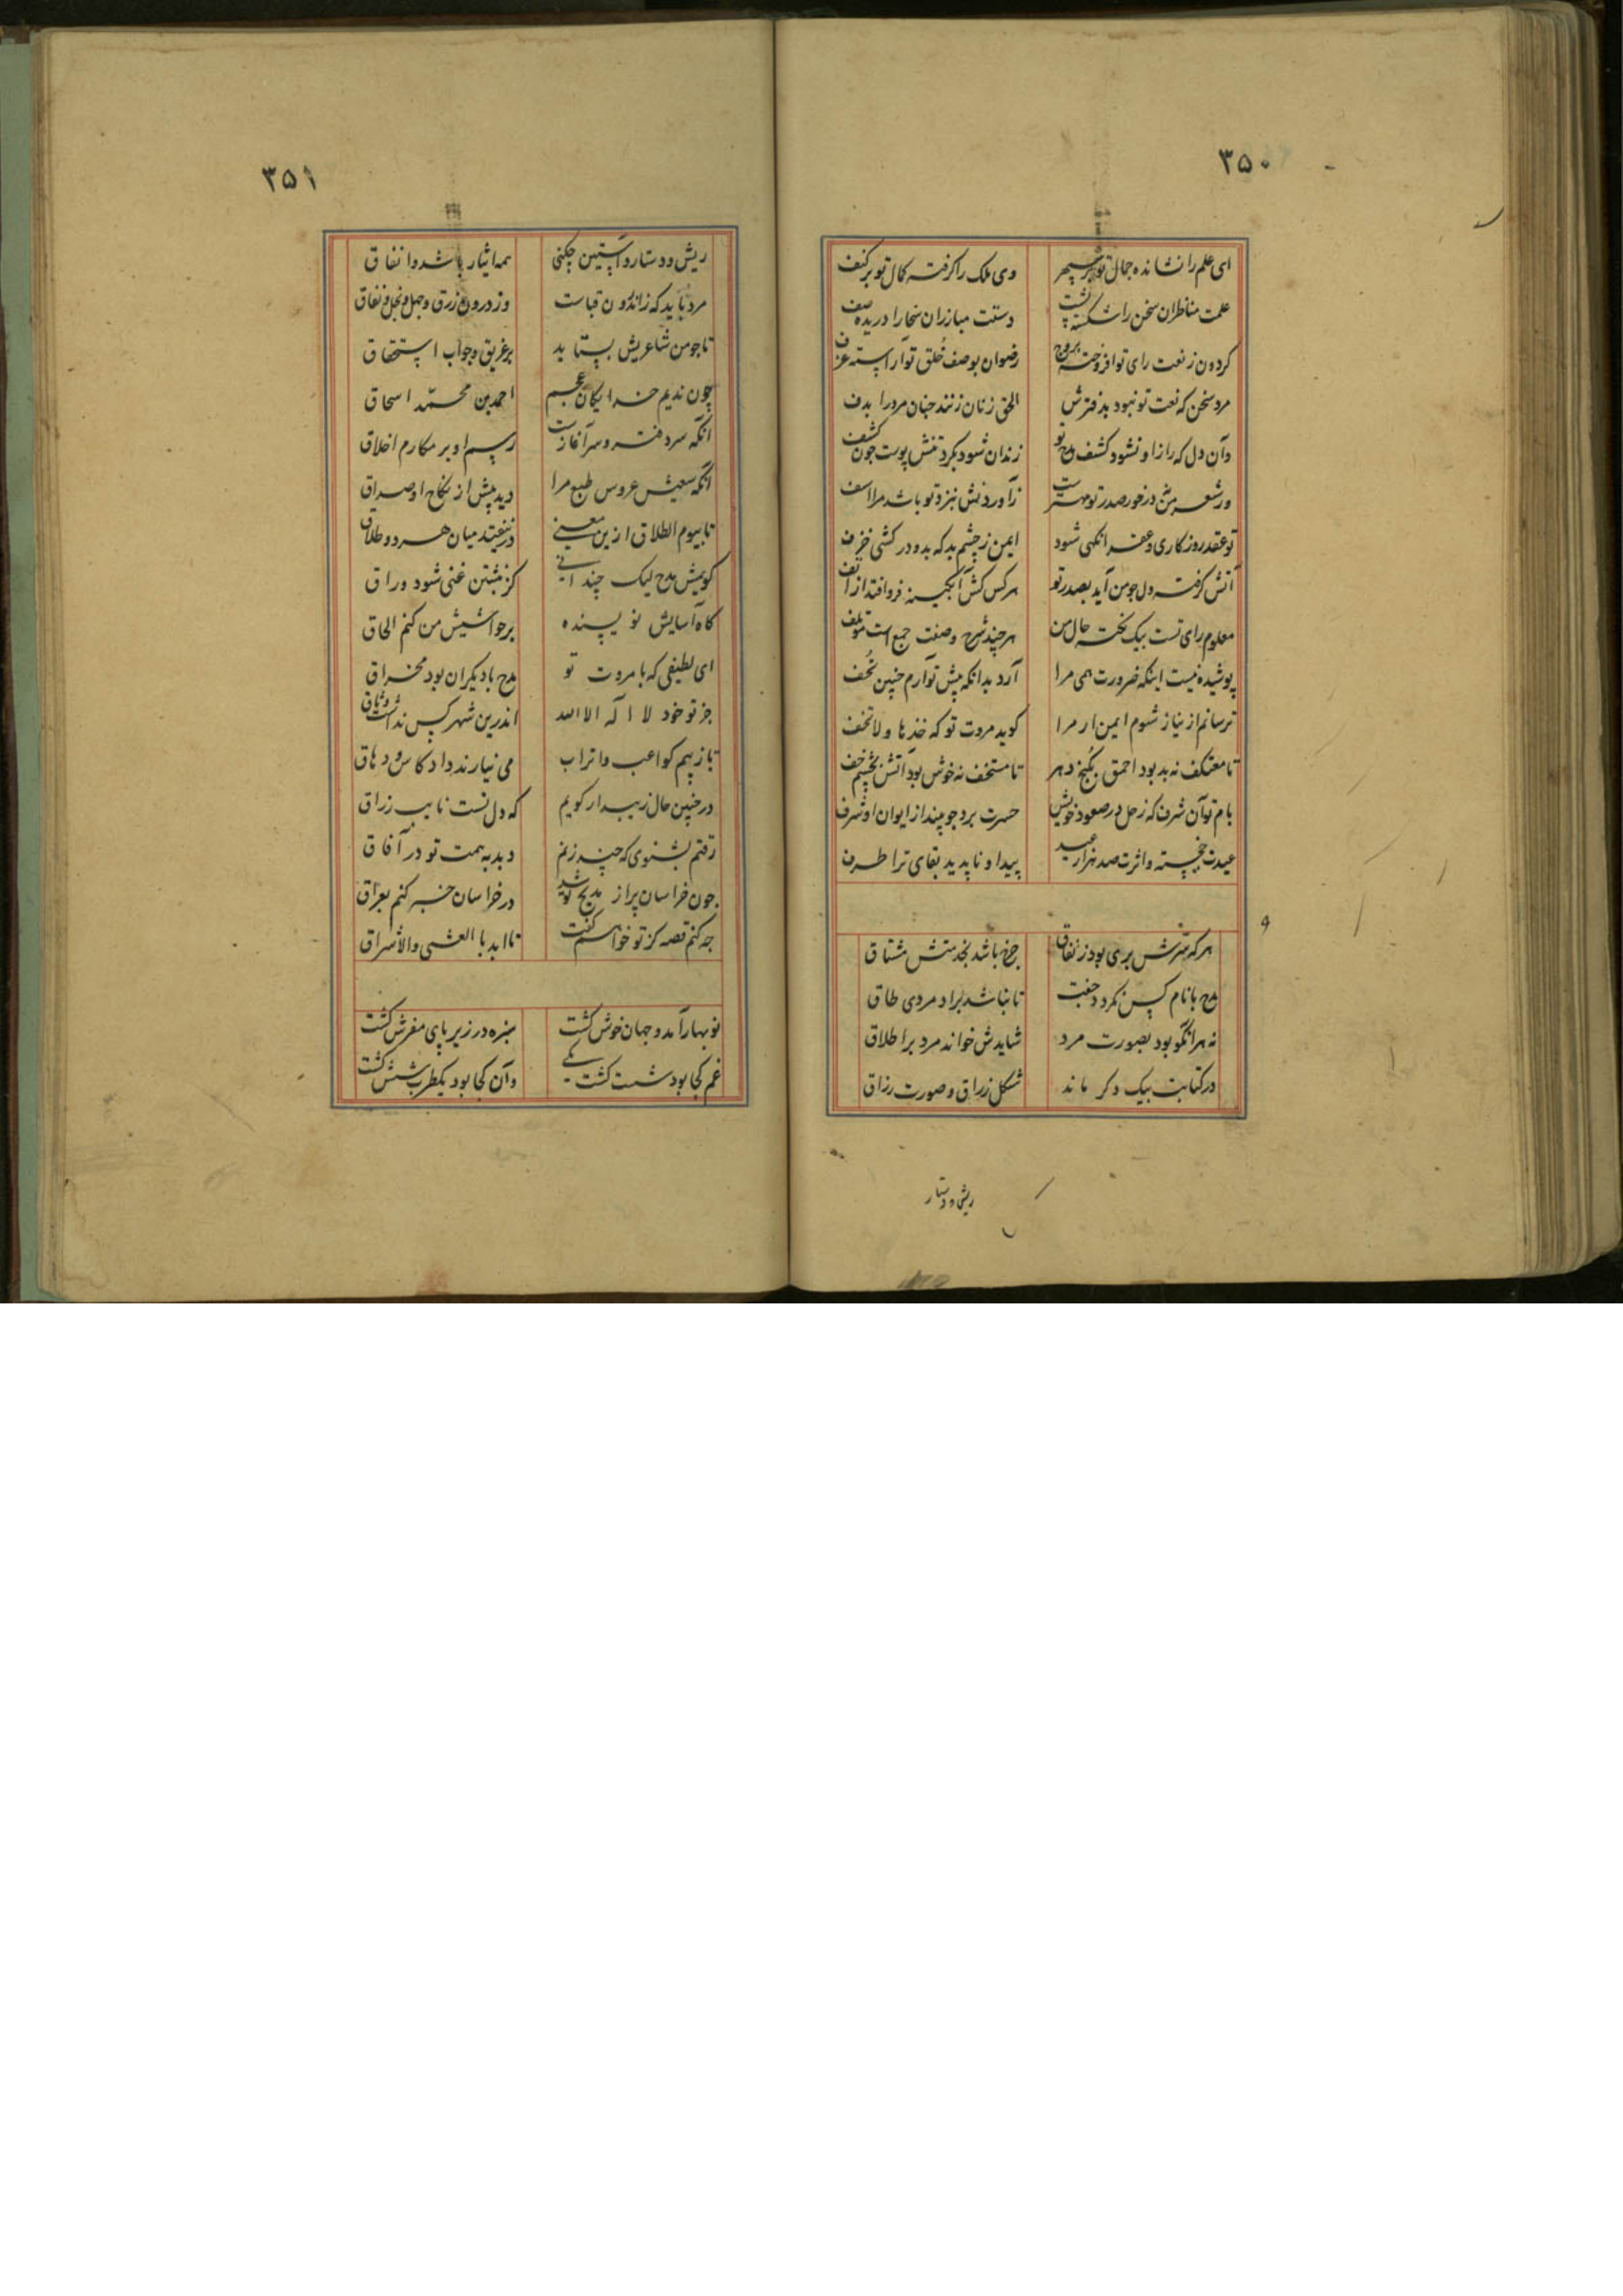 ۳۵۰
ای علم را نشانده جمال تو بر سپهر وی ملک را گرفته کمال تو بر کنف
علمت مناظران سخن را شکسته پشت دستت مبارزان سخا را دریده صف
کردون ز نعت رای تو افروخته بروج رضوان بوصف خُلق تو آراسته غرف
مرد سخن که نعت تو نبود بدفترش الحق زنان زنند جنان مرد را بدف
وآن دل که راز او نشود کشف مدح تو زندان شود بکرد تنش پوست جون کشف
ور شعر من نه در خور صدر تو مهترست زآوردنش بنزد تو باشد مرا اسف
تو عقد روزکاری و عقد انکهی شود ایمن ز چشم بد که بدو در کشی خزف
آتش گرفته دل جو من آید بصدر تو هر کس کش آبکینه فرو افتد از انف
معلوم رای تست بیک نکته حال من هر چند شرح وصفت جمع است مؤتلف
پوشیده نیست اینکه ضرورت همی مرا آرد بدانکه پیش تو آرم جنین تُحف
ترسانم از نیاز شوم ایمن ار مرا کوید مروت تو که خذها ولا تخف
تا معتکف نه بد بود احمق بکنج دهر تا مستخف نه خوش بود آتش بچشم خف
بام تو آن شرف که زحل در صعود خویش حسرت برد جو بیند از ایوان او شرف
عیدت خجسته واثرت صد هزار عید پیدا و ناپدید بقای ترا طرف
هر که سرش بری بود ز نفاق چرخ باشد بخدمتش مشتاق
مدح با نام کس نکردد جفت تا نباشد براد مردی طاق
نه هر انکو بود بصورت مرد شایدش خواند مرد براطلاق
در کتابت بیک دکر ماند شکل زراق وصورت رزاق
ریش و دستار
۳۵۱
ریش ودستار وآستین چکنی همه ایثار باشد وانفاق
مرد باید که زاندرون قباست وز درون زرق وجهل وبخل ونفاق
تا جو من شاعریش بستاید بر طریق وجواب استحقاق
چون ندیم خدایکان عجم احمد بن محمّد اسحاق
آنکه سر دفتر وسر آغازست رسم او بر مکارم اخلاق
آنکه سعیش عروس طبع مرا دید پیش از نکاح او صداق
تا بیوم الطلاق از ین معنی در نیفتد میان هر دو طلاق
کویمش مدح لیک چندانی کز نبشتن غنی شود وراق
کاه آسایش نویسنده بر حواشیش من کنم الحاق
ای لطیفی که با مروت تو مدح با دیکران بود مخراق
جز تو خود لا اله الا الله اندرین شهر کس نداشت وثاق
تا ز بیم کواعب واتراب می نیارند داد کاس دهاق
در جنین حال زیبد ار کویم که دل تست نایب رزاق
رفتم بشنوی که چند زنم دبدبه همت تو در آفاق
جون خراسان پر از مدیح تو شد در خراسان خبر کنم بعراق
جه کنم قصه کز تو خواهم کفت تا ابد با العشی والاشراق
نو بهار آمد وجهان خوش کشت سبزه در زیر پای مفرش کشت
غم کجا بود شست کشت یکی وآن کجا بود یکطرب شش کشت